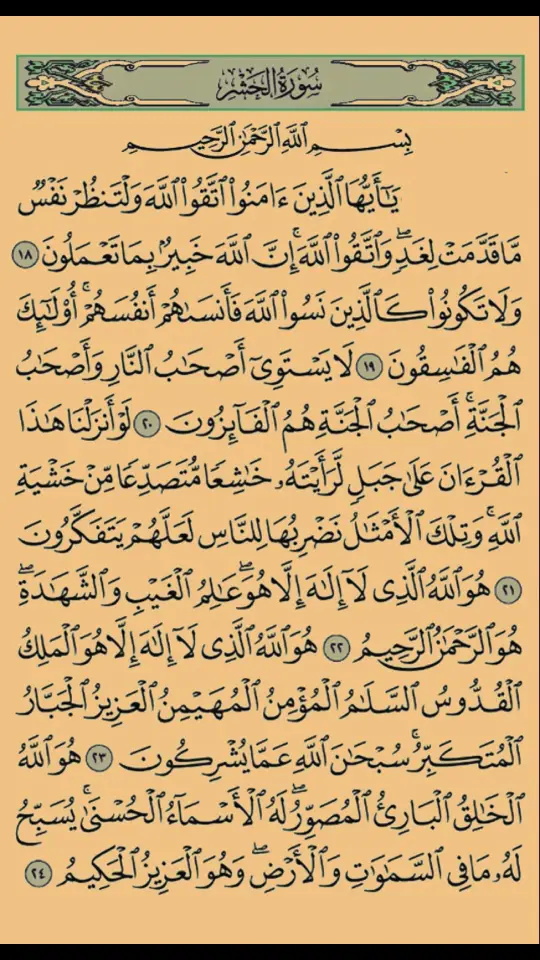 سُورَةُ الحَشْرِ
بِسْمِ ٱللَّهِ ٱلرَّحْمَٰنِ ٱلرَّحِيمِ
يَـٰٓأَيُّهَا ٱلَّذِينَ ءَامَنُوا۟ ٱتَّقُوا۟ ٱللَّهَ وَلْتَنظُرْ نَفْسٌ
مَّا قَدَّمَتْ لِغَدٍ ۖ وَٱتَّقُوا۟ ٱللَّهَ ۚ إِنَّ ٱللَّهَ خَبِيرٌۢ بِمَا تَعْمَلُونَ ١٨
وَلَا تَكُونُوا۟ كَٱلَّذِينَ نَسُوا۟ ٱللَّهَ فَأَنسَىٰهُمْ أَنفُسَهُمْ ۚ أُو۟لَـٰٓئِكَ
هُمُ ٱلْفَـٰسِقُونَ ١٩ لَا يَسْتَوِىٓ أَصْحَـٰبُ ٱلنَّارِ وَأَصْحَـٰبُ
ٱلْجَنَّةِ ۚ أَصْحَـٰبُ ٱلْجَنَّةِ هُمُ ٱلْفَآئِزُونَ ٢٠ لَوْ أَنزَلْنَا هَـٰذَا
ٱلْقُرْءَانَ عَلَىٰ جَبَلٍ لَّرَأَيْتَهُۥ خَـٰشِعًا مُّتَصَدِّعًا مِّنْ خَشْيَةِ
ٱللَّهِ ۚ وَتِلْكَ ٱلْأَمْثَـٰلُ نَضْرِبُهَا لِلنَّاسِ لَعَلَّهُمْ يَتَفَكَّرُونَ
٢١ هُوَ ٱللَّهُ ٱلَّذِى لَآ إِلَـٰهَ إِلَّا هُوَ ۖ عَـٰلِمُ ٱلْغَيْبِ وَٱلشَّهَـٰدَةِ ۖ
هُوَ ٱلرَّحْمَـٰنُ ٱلرَّحِيمُ ٢٢ هُوَ ٱللَّهُ ٱلَّذِى لَآ إِلَـٰهَ إِلَّا هُوَ ٱلْمَلِكُ
ٱلْقُدُّوسُ ٱلسَّلَـٰمُ ٱلْمُؤْمِنُ ٱلْمُهَيْمِنُ ٱلْعَزِيزُ ٱلْجَبَّارُ
ٱلْمُتَكَبِّرُ ۚ سُبْحَـٰنَ ٱللَّهِ عَمَّا يُشْرِكُونَ ٢٣ هُوَ ٱللَّهُ
ٱلْخَـٰلِقُ ٱلْبَارِئُ ٱلْمُصَوِّرُ ۖ لَهُ ٱلْأَسْمَآءُ ٱلْحُسْنَىٰ ۚ يُسَبِّحُ
لَهُۥ مَا فِى ٱلسَّمَـٰوَٰتِ وَٱلْأَرْضِ ۖ وَهُوَ ٱلْعَزِيزُ ٱلْحَكِيمُ ٢٤